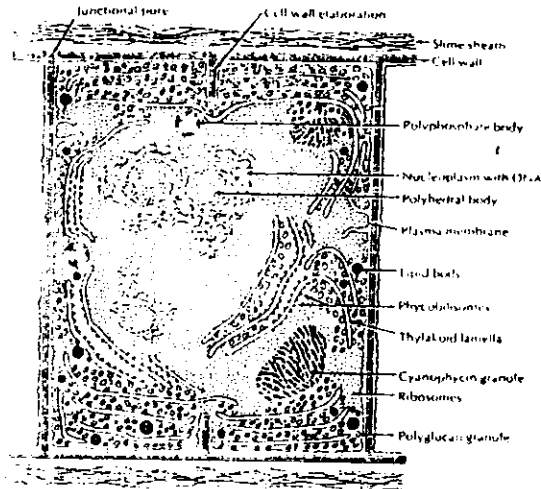 Junctional pore
Cell wall elaboration
Slime sheath
Cell wall
Polyphosphate body
Nucleoplasm with DNA
Polyhedral body
Plasma membrane
Lipid body
Phycobilisomes
Thylakoid lamella
Cyanophycin granule
Ribosomes
Polyglucan granule